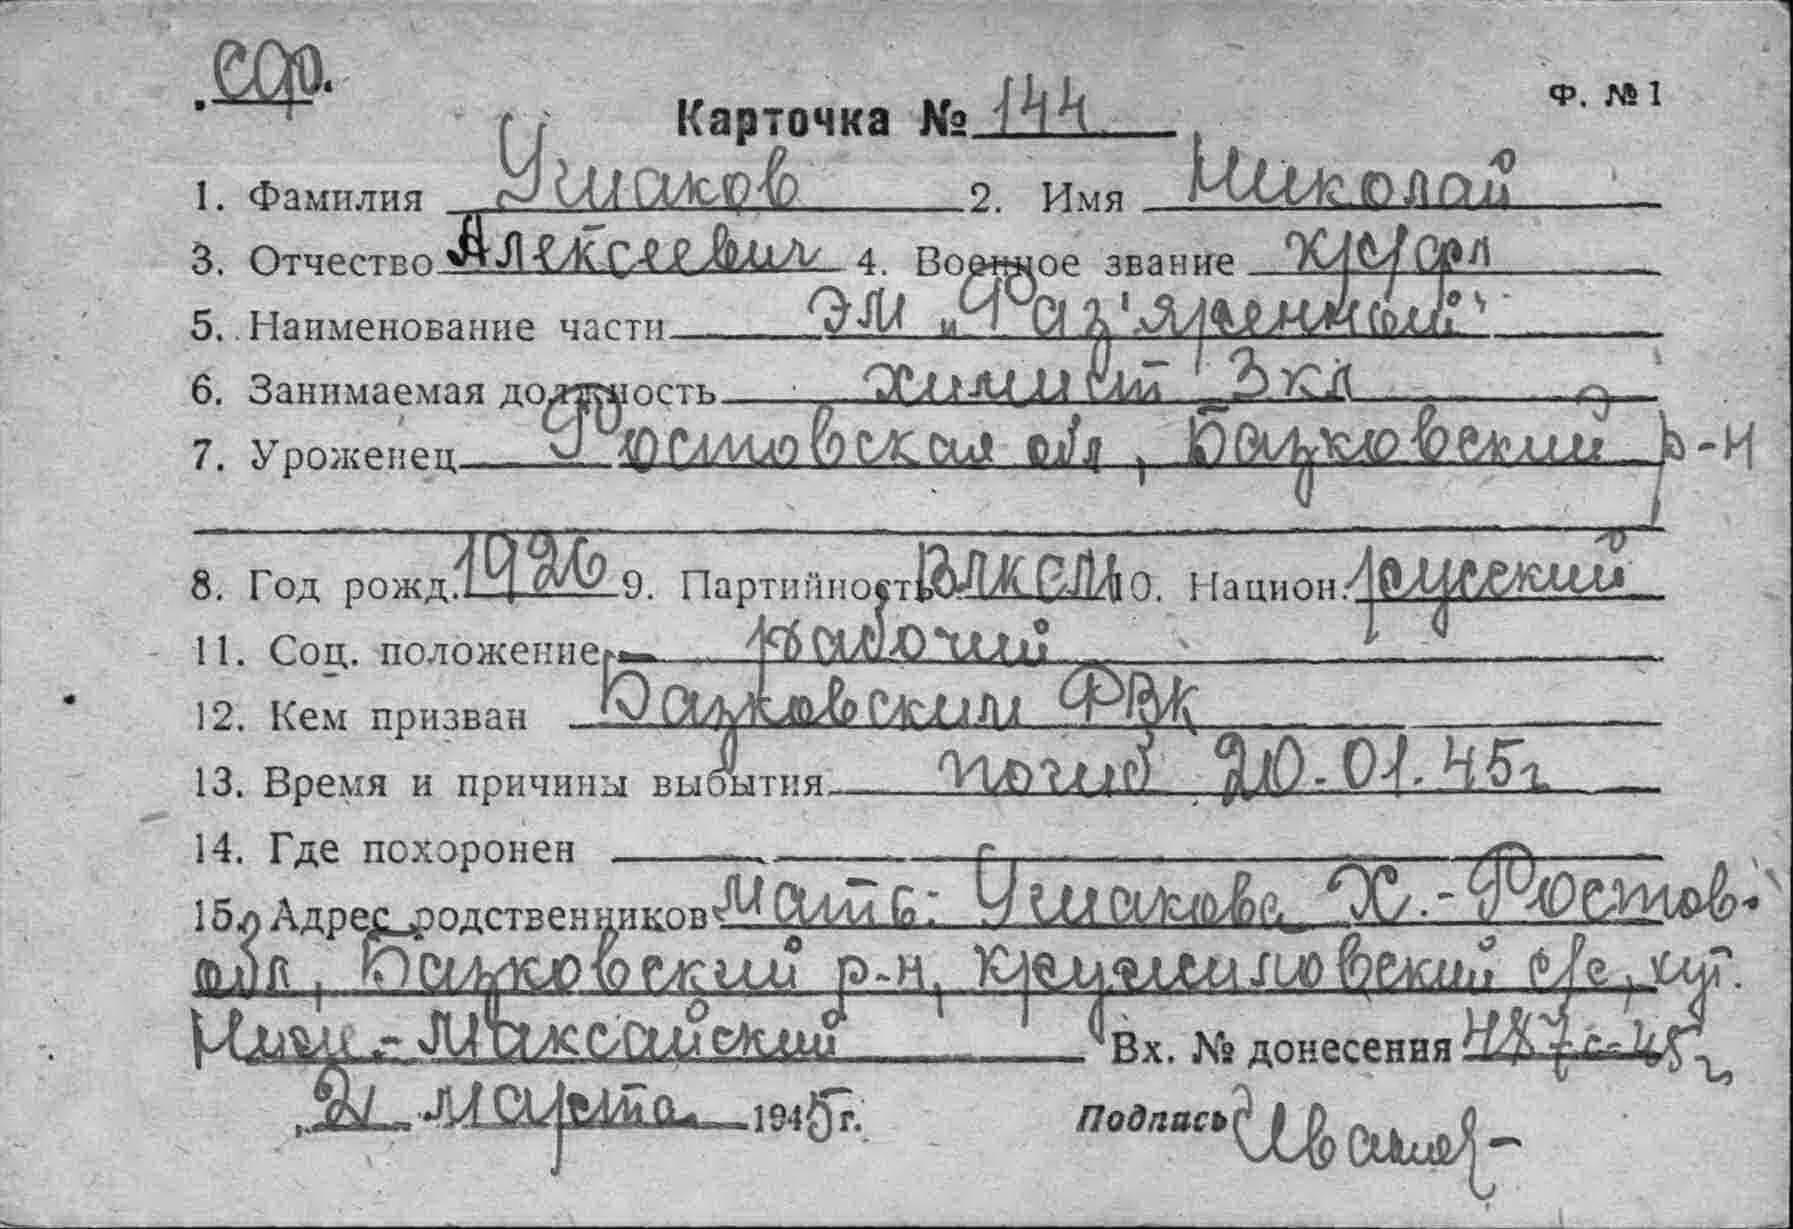 СФ.
Ф. № 1
Карточка № 144
1. Фамилия Ушаков 2. Имя Николай
3. Отчество Алексеевич 4. Военное звание кр/фл
5. Наименование части ЭМ „Раз'яренный"
6. Занимаемая должность химист 3 кл
7. Уроженец Ростовская обл, Базковский р-н
8. Год рожд. 1926 9. Партийность ВЛКСМ 10. Национ. русский
11. Соц. положение рабочий
12. Кем призван Базковским РВК
13. Время и причины выбытия погиб 20.01.45г
14. Где похоронен
15. Адрес родственников Мать: Ушакова Х.- Ростов.
обл, Базковский р-н, Кружиловский с/с, хут.
Ниж.-Максайский Вх. № донесения 487с-45г
21 марта 1945 г. Подпись